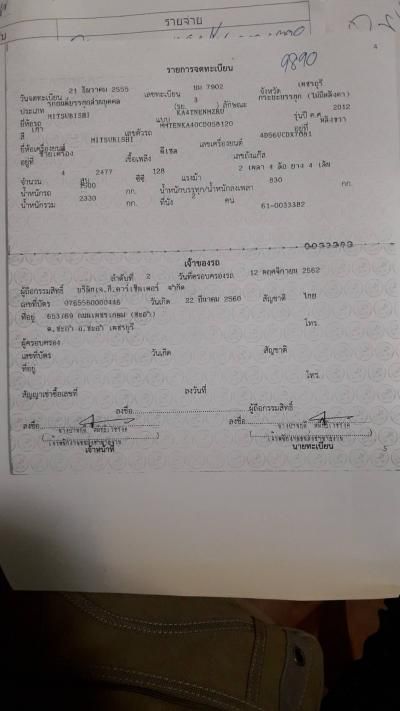 รายจ่าย
9890
4
รายการจดทะเบียน
วันจดทะเบียน 21 ธันวาคม 2555 เลขทะเบียน บม 7902 จังหวัด เพชรบุรี
ประเภท รถยนต์บรรทุกส่วนบุคคล (รย. 3 ) ลักษณะ กระบะบรรทุก (ไม่มีหลังคา)
ยี่ห้อรถ MITSUBISHI แบบ KA4TNENMZRU รุ่นปี ค.ศ. 2012
สี เทา เลขตัวรถ MMTENKA40CD058120 อยู่ที่
ยี่ห้อเครื่องยนต์ MITSUBISHI เลขเครื่องยนต์ 4D56UCDX7081
อยู่ที่ ซ้ายเครื่อง เชื้อเพลิง ดีเซล เลขถังแก๊ส
จำนวน 4 สูบ 2477 ซีซี 128 แรงม้า 2 เพลา 4 ล้อ ยาง 4 เส้น
น้ำหนักรถ 1500 กก. น้ำหนักบรรทุก/น้ำหนักลงเพลา 830 กก.
น้ำหนักรวม 2330 กก. ที่นั่ง 2 คน 61-0033382
เจ้าของรถ
ลำดับที่ 2 วันที่ครอบครองรถ 12 พฤศจิกายน 2562
ผู้ถือกรรมสิทธิ์ จำกัด
เลขที่บัตร 0765560000446 วันเกิด 22 มีนาคม 2560 สัญชาติ ไทย
ที่อยู่ 653/69 ถนนเพชรเกษม (ชะอำ)
ต.ชะอำ อ.ชะอำ เพชรบุรี โทร.
ผู้ครอบครอง
เลขที่บัตร วันเกิด สัญชาติ
ที่อยู่
โทร.
สัญญาเช่าซื้อเลขที่ ลงวันที่
ลงชื่อ ผู้ถือกรรมสิทธิ์
ลงชื่อ ลงชื่อ
เจ้าหน้าที่ นายทะเบียน
5